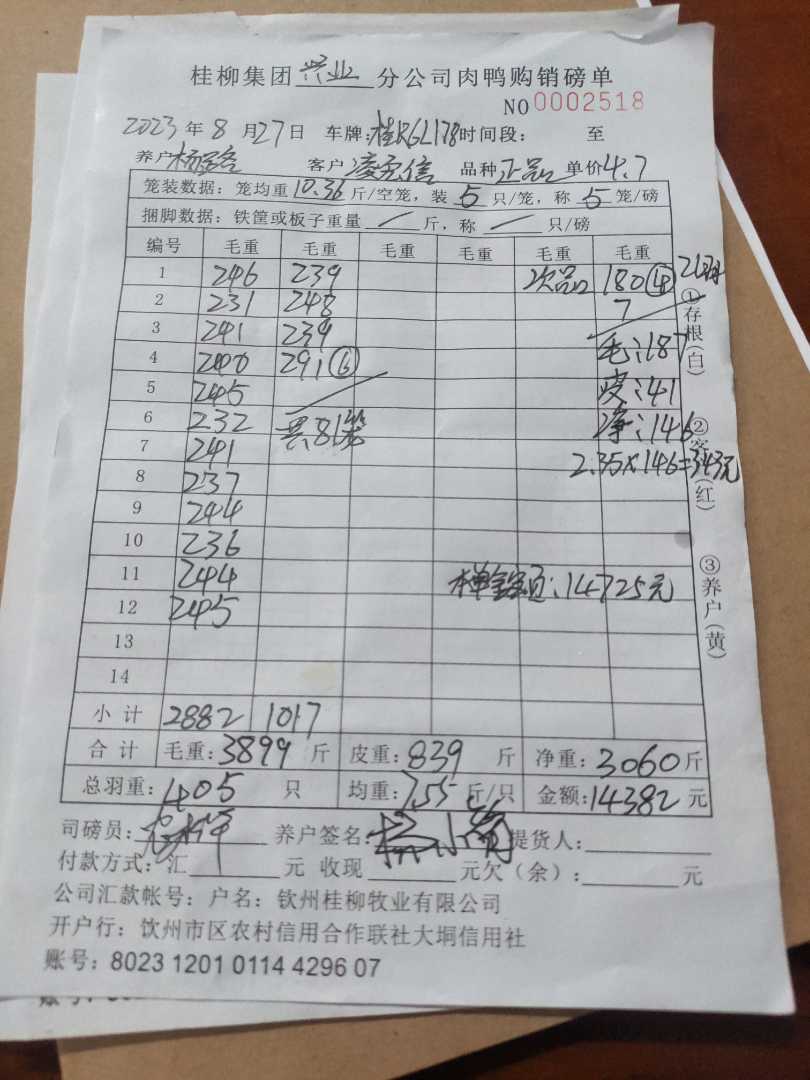 桂柳集团兴业分公司肉鸭购销磅单
NO 0002518
2023年8月27日 车牌:桂RGL178时间段: 至
养户 客户 凌 信 品种 正品 单价4.7
笼装数据: 笼均重10.36斤/空笼, 装 5 只/笼, 称 5 笼/磅
捆脚数据: 铁筐或板子重量 / 斤, 称 / 只/磅
编号 毛重 毛重 毛重 毛重 毛重 毛重
1 246 239 次品 180④ 21只
2 231 248 7
3 241 239 毛:187
4 240 291⑥ 皮:41
5 245
6 232 共81笼 净:146
7 241 2.35×146=343元
8 237
9 244
10 236
11 244 单金额:14725元
12 245
13
14
小计 2882 1017
合计 毛重:3899斤 皮重:839斤 净重:3060斤
总羽重:405只 均重:7.55斤/只 金额:14382元
司磅员: 养户签名: 提货人:
付款方式: 汇 元 收现 元欠(余): 元
公司汇款帐号: 户名: 钦州桂柳牧业有限公司
开户行: 饮州市区农村信用合作联社大垌信用社
账号: 8023 1201 0114 4296 07
①存根(白)
②客 (红)
③养户(黄)